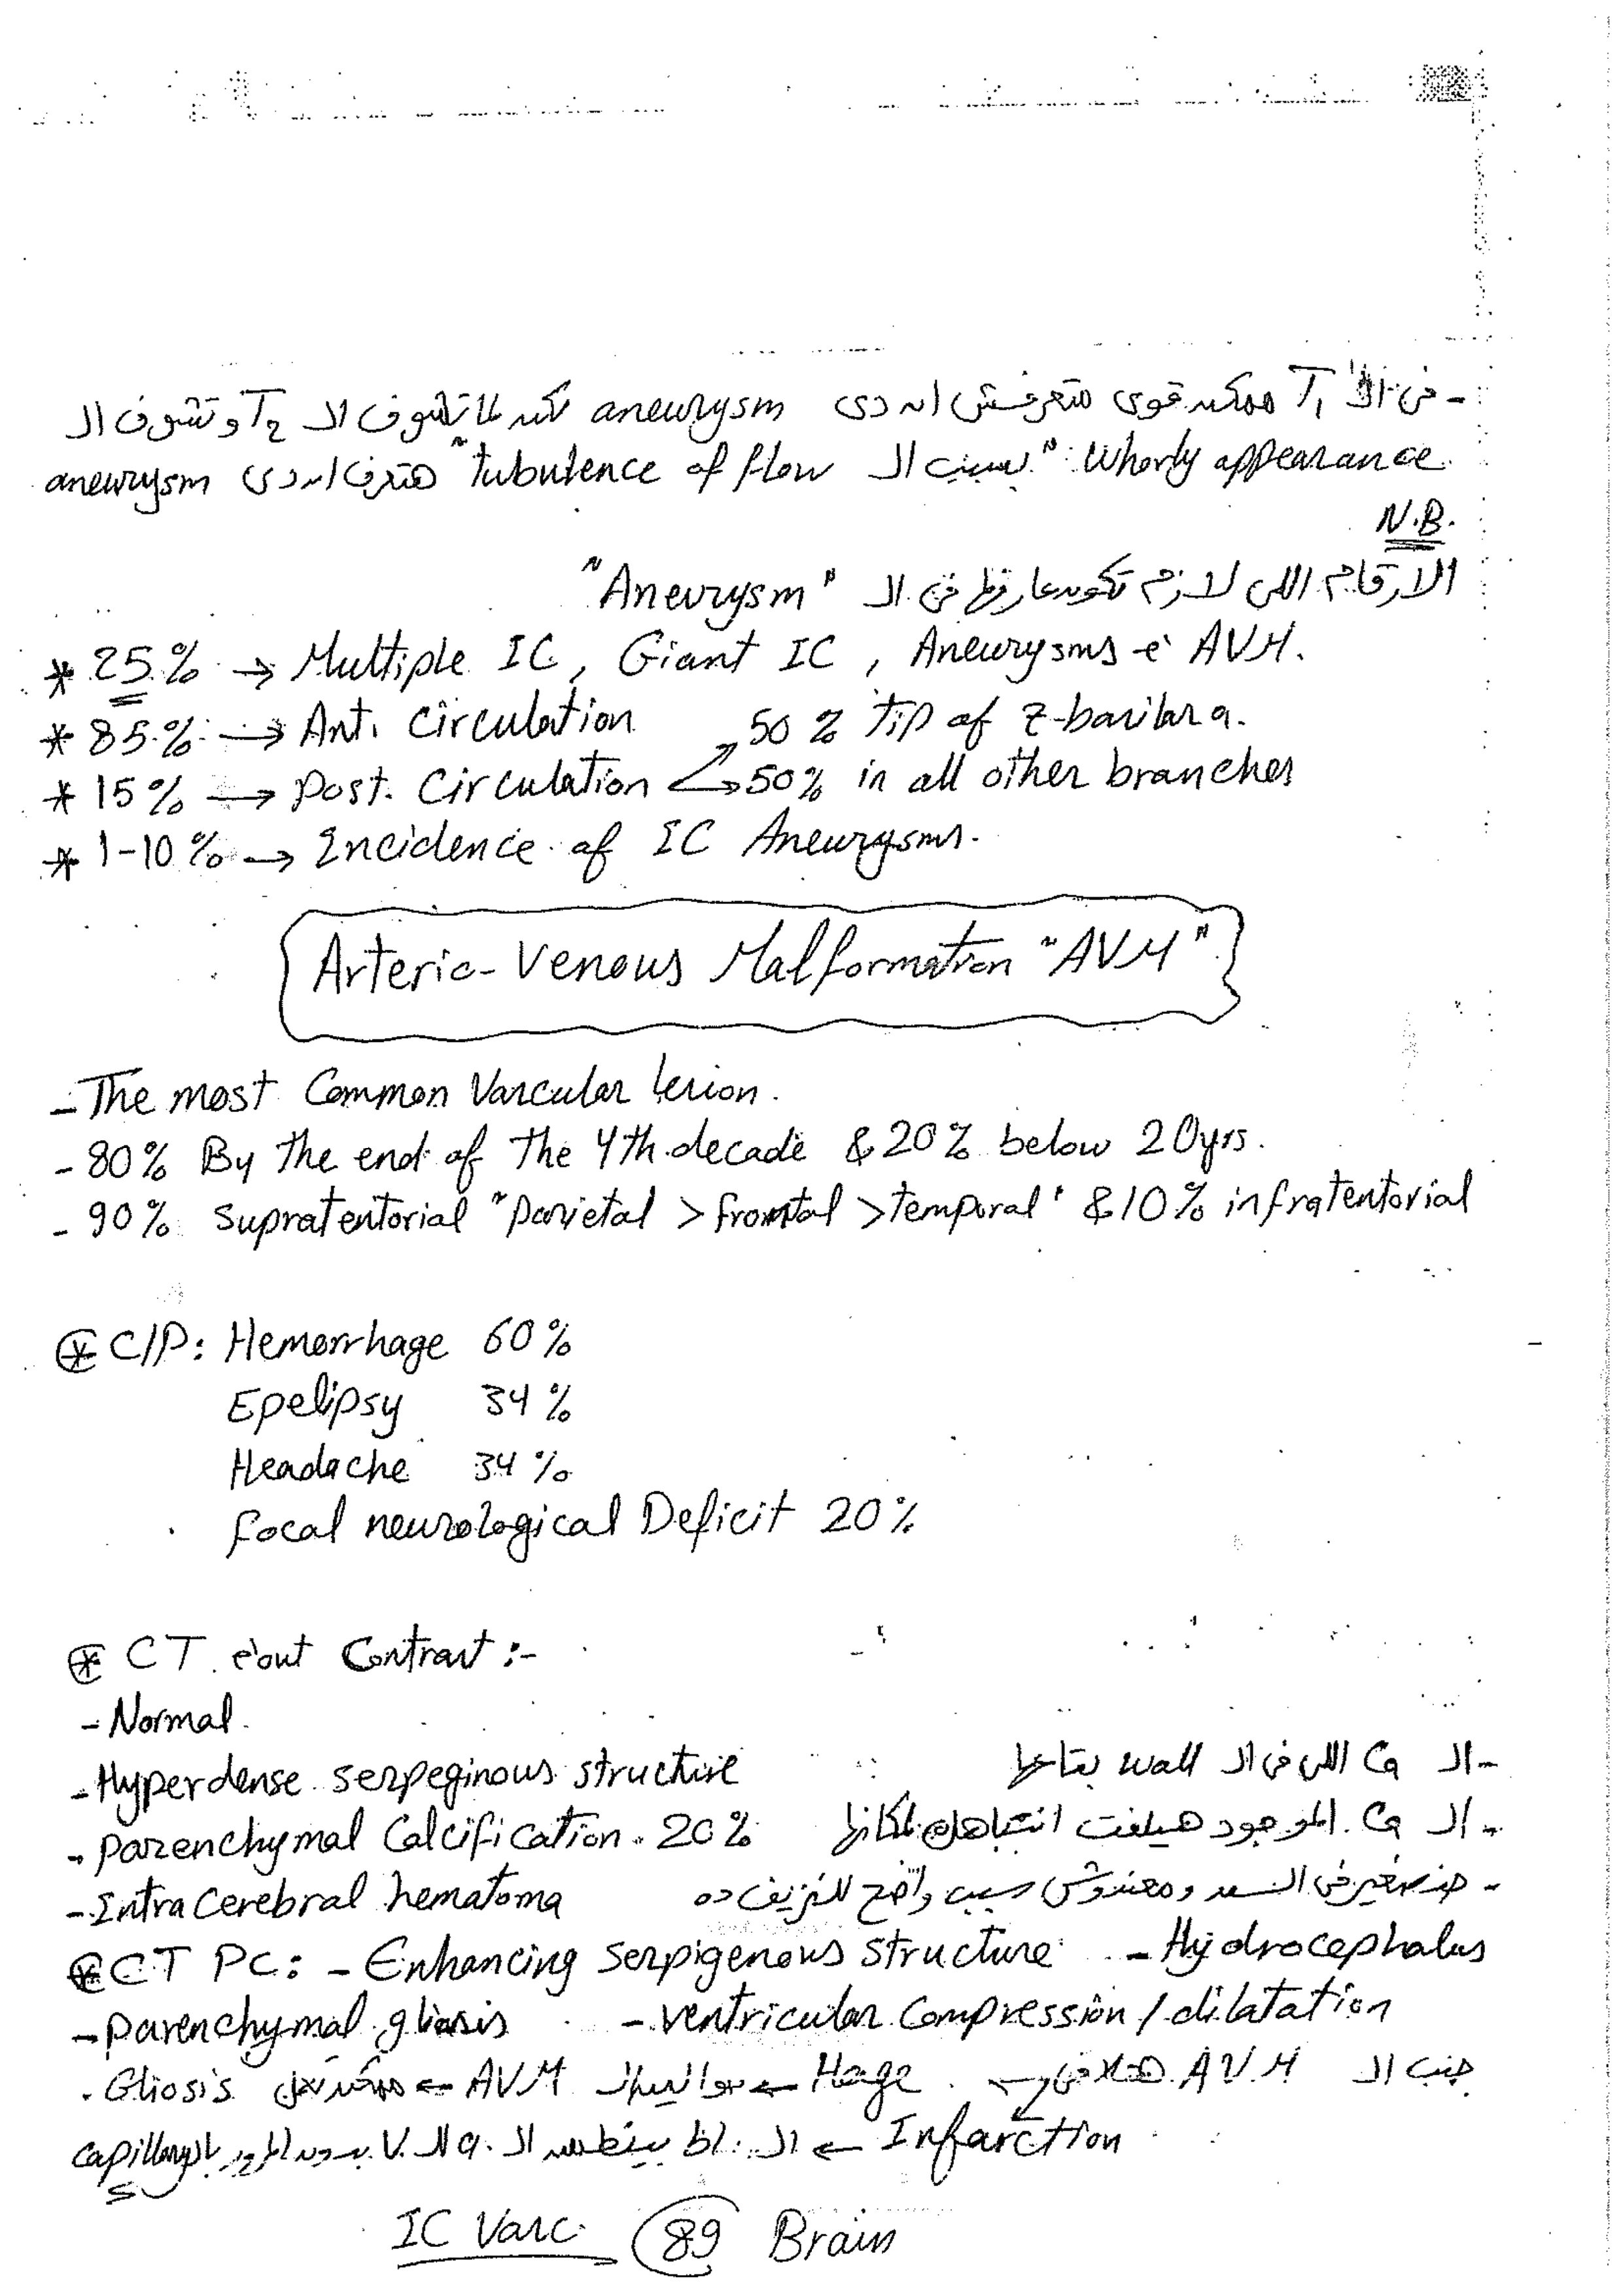 - فى الـ T1 ممكن قوى متعرفش ان دى aneurysm لكن لما تشوف الـ T2 وتشوف الـ
Whorly appearance "بسبب الـ tubulence of flow" هتعرف ان دى aneurysm
N.B.
الارقام اللى لازم تكون عارفها فى الـ "Aneurysm"
* 25% → Multiple IC, Giant IC, Aneurysms è AVM.
* 85% → Ant. Circulation
50% Tip of z-basilar a.
* 15% → Post. Circulation
50% in all other branches
* 1-10% → Incidence of IC Aneurysms.
Arterio-Venous Malformation "AVM"
- The most Common Vascular lesion.
- 80% By the end of the 4th decade & 20% below 20yrs.
- 90% supratentorial "parietal > frontal > temporal" & 10% infratentorial
* C/P: Hemorrhage 60%
Epelipsy 34%
Headache 34%
focal neurological Deficit 20%
* CT è out Contrast :-
- Normal
- Hyperdense serpeginous structure
- الـ Ca اللى فى الـ wall بتاعها
- parenchymal Calcification 20%
- الـ Ca الموجود هيلفت انتباهك لمكانها
- Intra Cerebral hematoma
- صغير فى السن ومعندوش سبب واضح للنزيف ده
* CT PC: - Enhancing serpigenous structure - Hydrocephalus
- parenchymal gliosis - ventricular Compression / dilatation
جنب الـ AVM هتلاقى → Hage ← حوالين الـ AVM ← ممكن تعمل Gliosis.
Infarction ← الـ bl. بينط من الـ a. للـ V. بدون المرور بالـ capillary
IC Vasc. 89 Brain